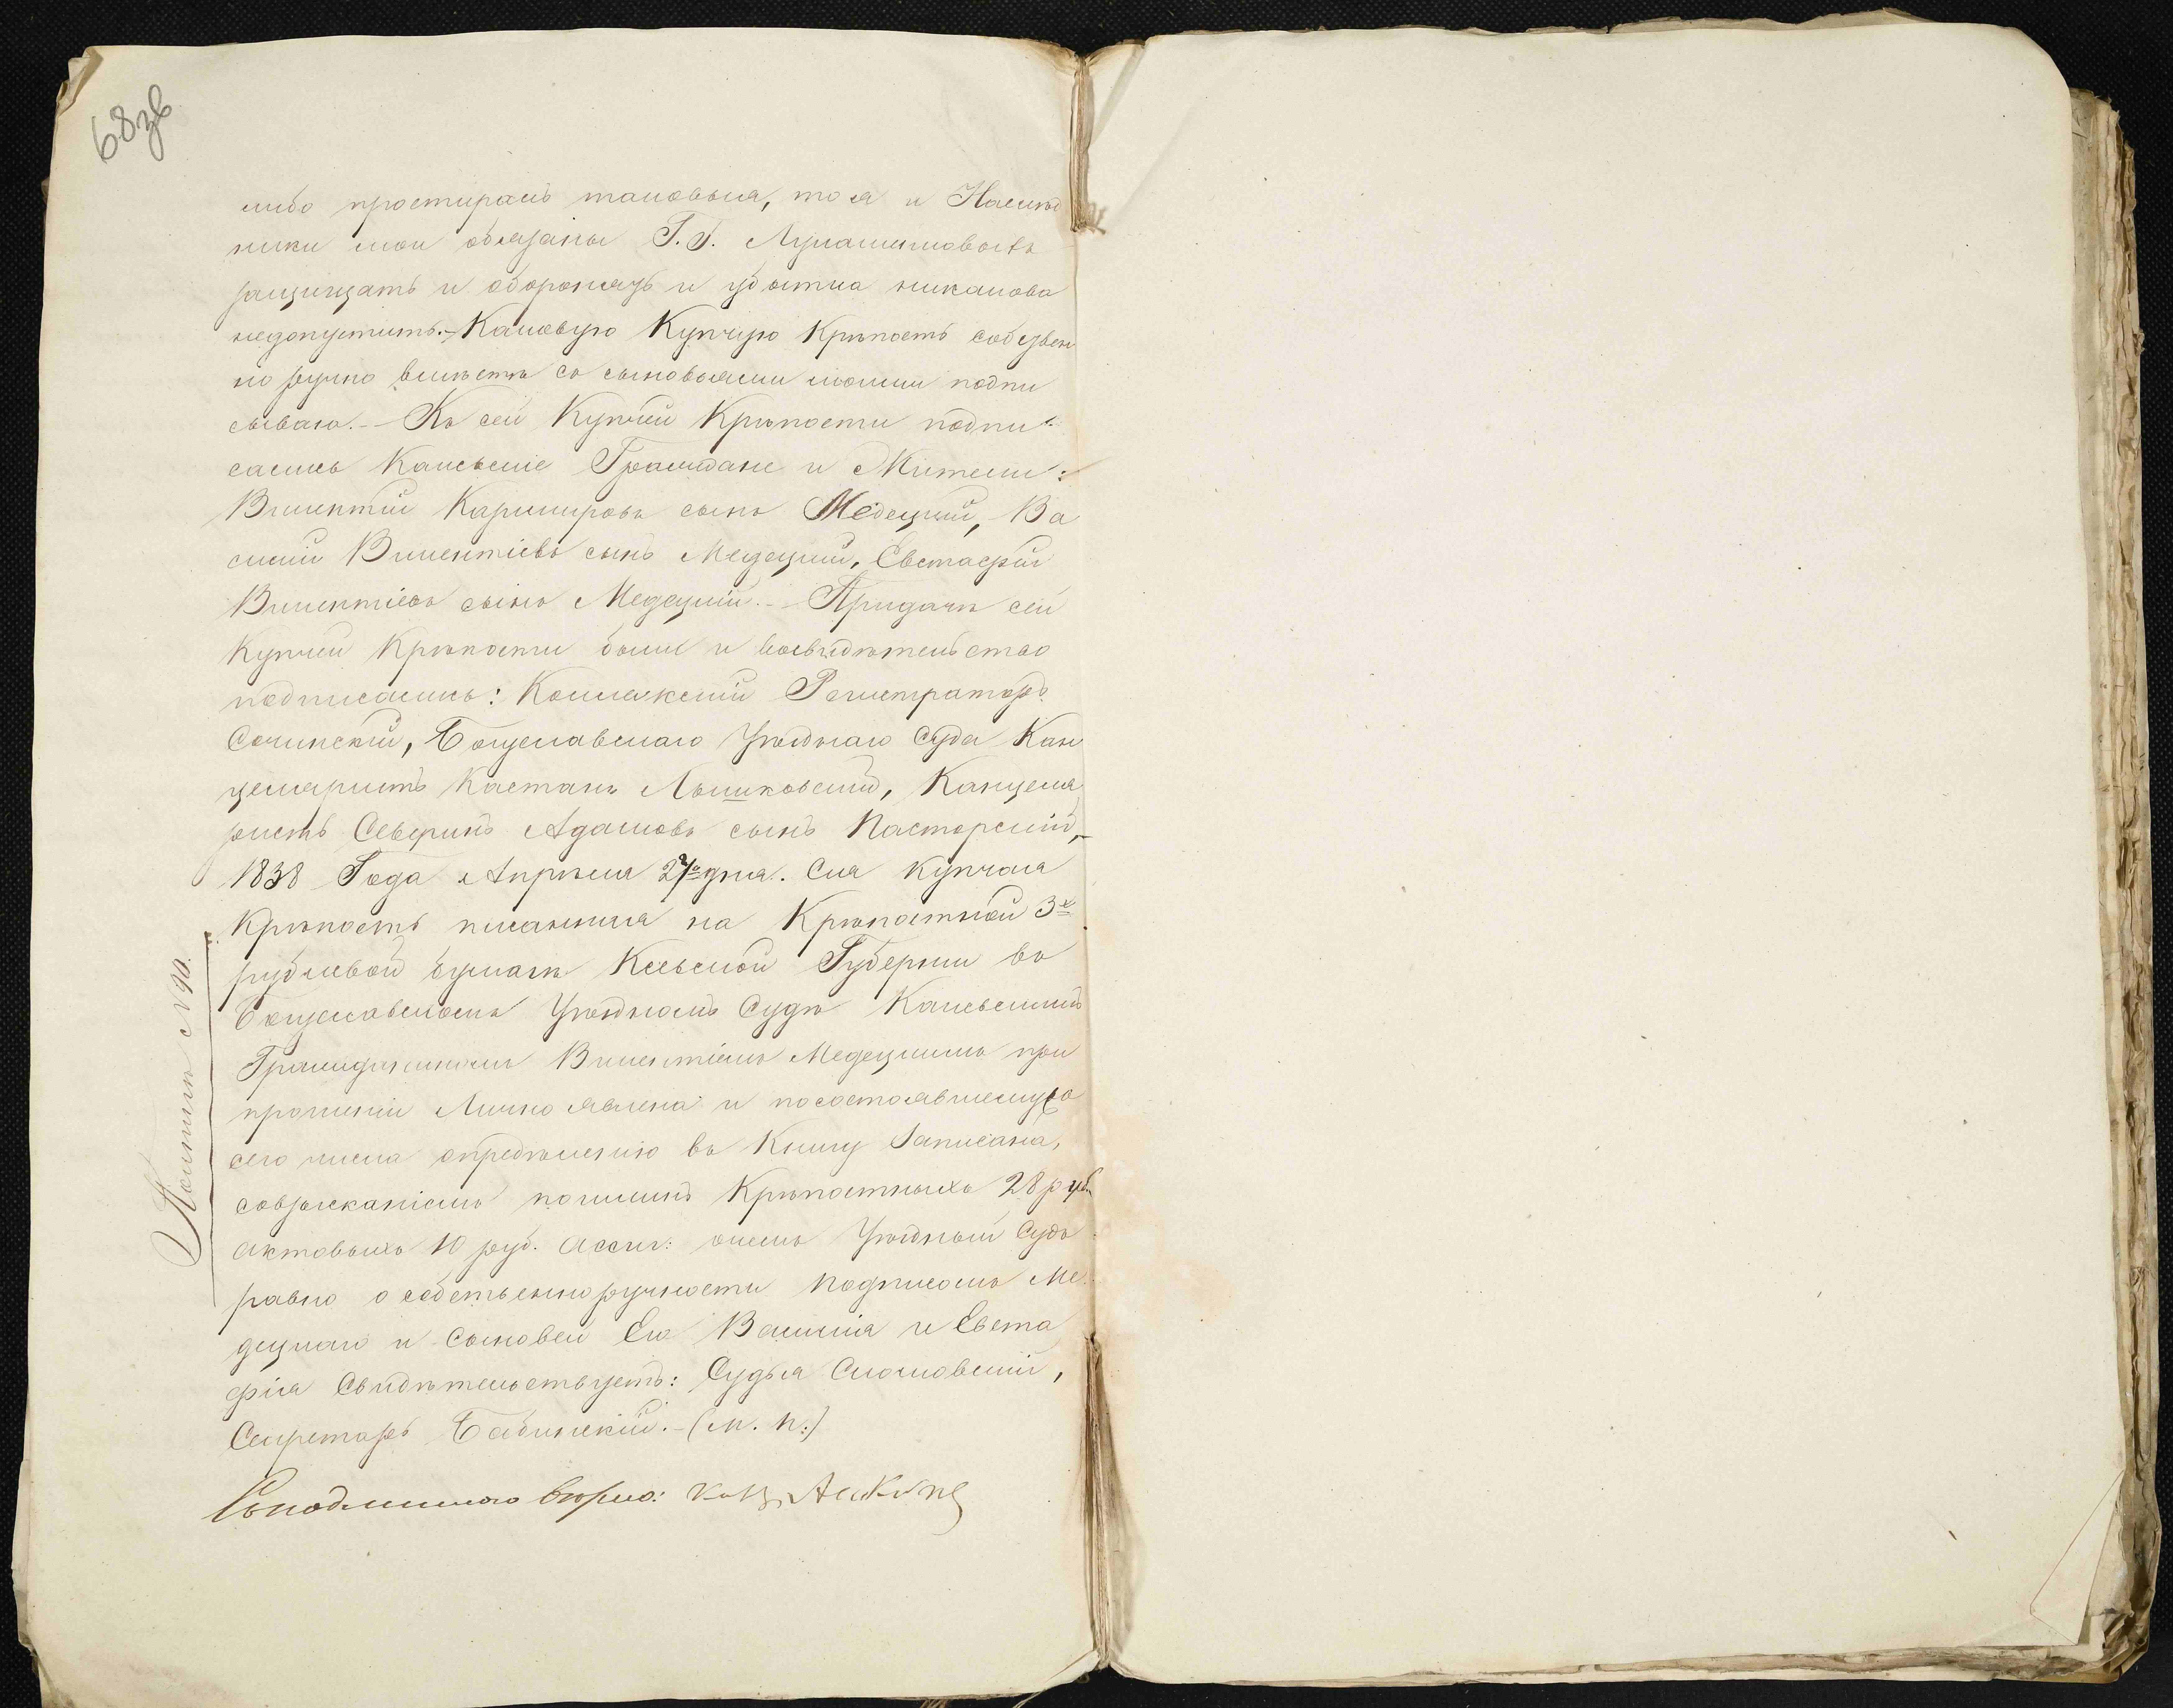 68зв
либо простиралъ таковыя, то я и Наслѣд
ники мои обязаны Г.Г. Лукашевичовыхъ
защищать и оборонять и убытка никакова
недопустить.- Каковую Купчую Крѣпость собствен
но ручно вмѣстѣ со сыновьями моими подпи
сываю.- Къ сей Купчей Крѣпости подпи-
сались Каневскіе Граждане и Жители:
Викентій Казимировъ сынъ Медецкій, Ва
силій Викентіевъ сынъ Медецкій, Евстафій
Викентіевъ сынъ Медецкій.- При дачѣ сей
Купчей Крѣпости были и восвидѣтельство
подписались: Коллежскій Регистраторъ
Сочинскій, Богуславскаго Уѣзднаго Суда Кан
целяристъ Каетанъ Лышковскій, Канцеля
ристъ Северинъ Адамовъ сынъ Пасторскій,-
1838 Года Апрѣля 27го дня. Сія Купчая
Крѣпость писанная на Крѣпостной 3х
рублевой бумагѣ Кіевской Губерніи во
Богуславскомъ Уѣздномъ Судѣ Каневскимъ
Гражданиномъ Викентіемъ Медецкимъ при
прошеніи Лично явлена и посостоявшемуся
сего числа опредѣленію въ Книгу Записана,
совзысканіемъ пошлинъ Крѣпостныхъ 28 руб.
актовыхъ 10 руб. Ассиг: очемъ Уѣздный Судъ
равно о собственноручности подписомъ Ме-
децкаго и Сыновей Его Василія и Евста
фія Свидѣтельствуетъ: Судья
Секретарь Бабинскій.- (М. П.)
Съподлиннымъ вѣрно:
№ 90.